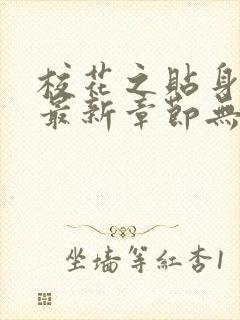 校花之貼身
最新章節無
坐墻等紅杏1